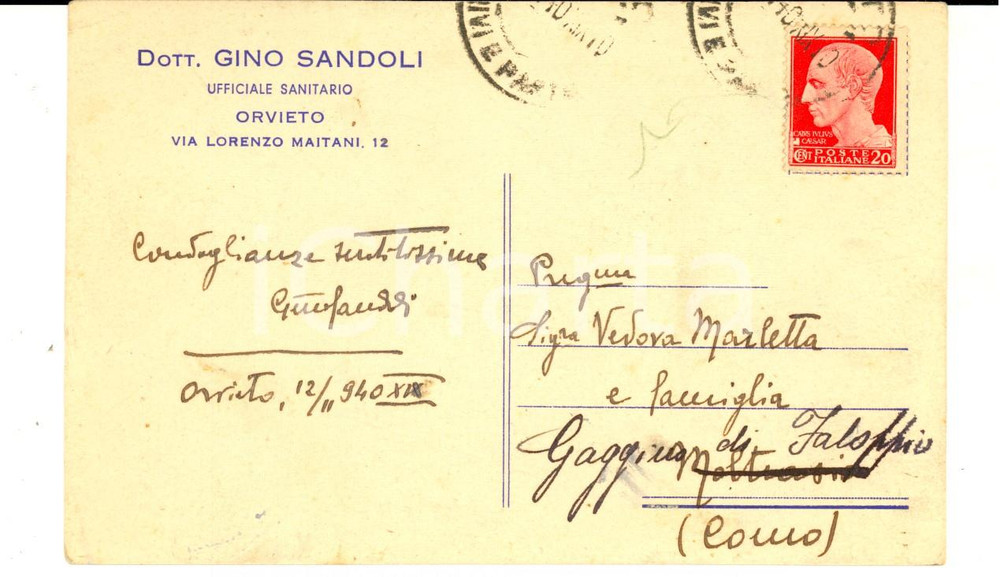 DOTT. GINO SANDOLI
UFFICIALE SANITARIO
ORVIETO
VIA LORENZO MAITANI, 12
CAIVS IVLIVS
CAESAR
CENT POSTE
ITALIANE 20
Condoglianze sentitissime
Orvieto, 12/11 940 XIX
Pregma
Sigra Vedova Marletta
e famiglia
Gaggino di Faloppio
Moltrasio
(Como)
iCharta